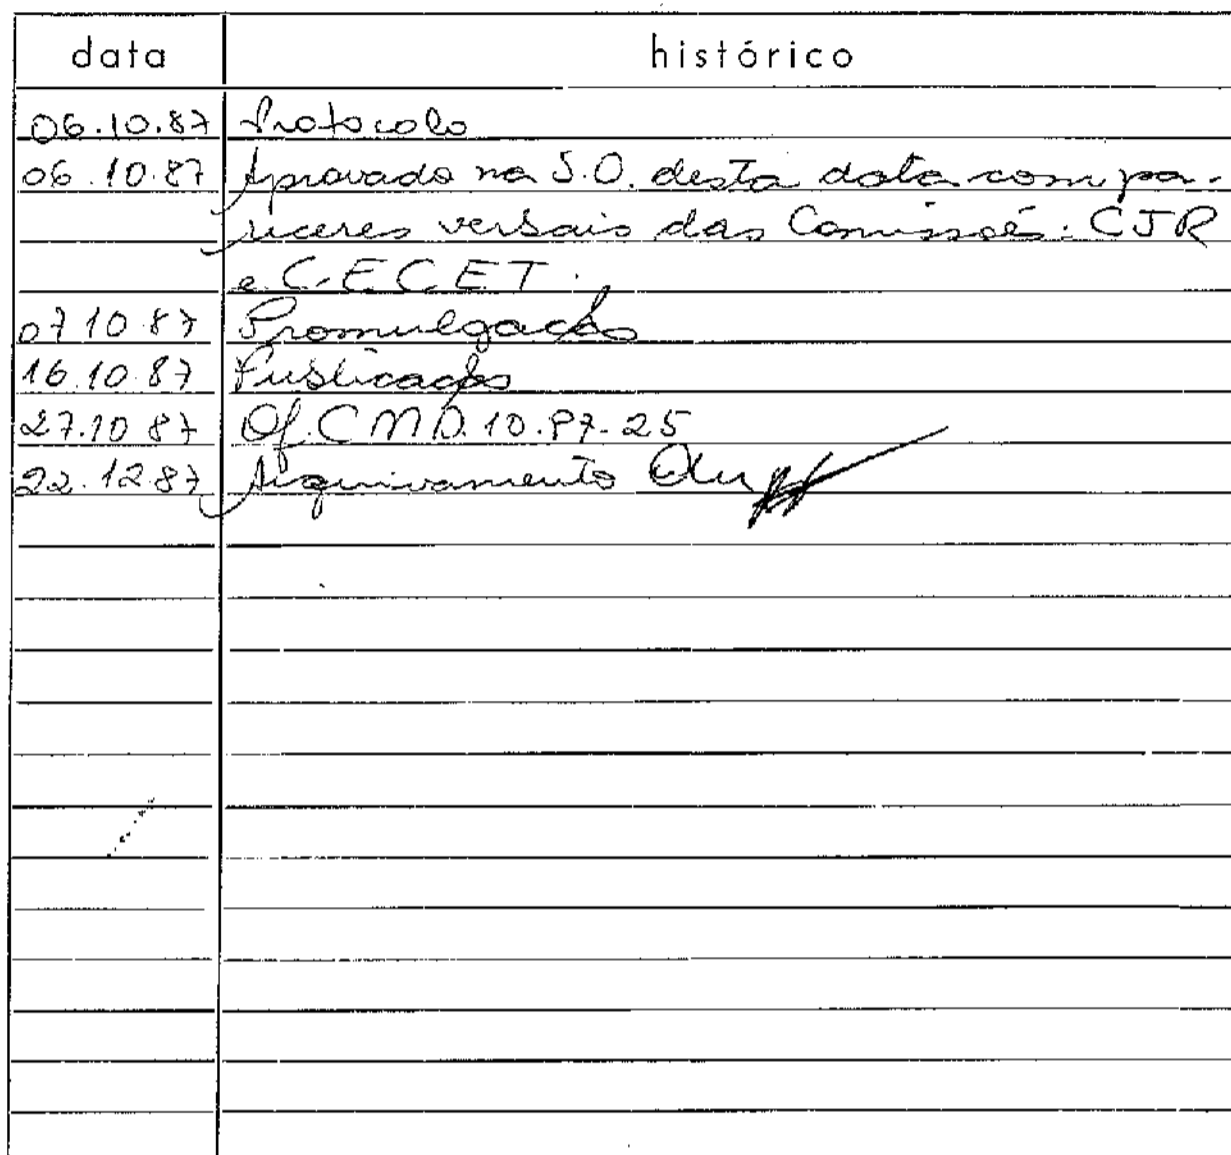 data histórico
06.10.87 Protocolo
06.10.87 Aprovado na S.O. desta data com pa-
receres verbais das Comissões: CJR
e C.E.C.E.T.
07.10.87 Promulgação
16.10.87 Publicação
27.10.87 Of. CMD. 10.87-25
22.12.87 Arquivamento